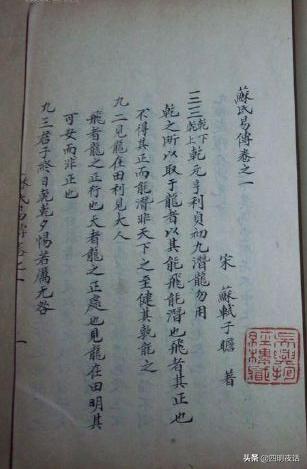 蘇氏易傳卷之一
宋 蘇軾子瞻 著
三三乾下乾上乾元亨利貞初九潛龍勿用
乾之所以取于龍者以其能飛能潛也飛者其正也
不得其正而能潛非天下之至健其孰能之
九二見龍在田利見大人
飛者龍之正行也天者龍之正處也見龍在田明其
可安而非正也
九三君子終日乾乾夕惕若厲无咎
蘇氏易傳卷之一
一
头条 @四明夜话